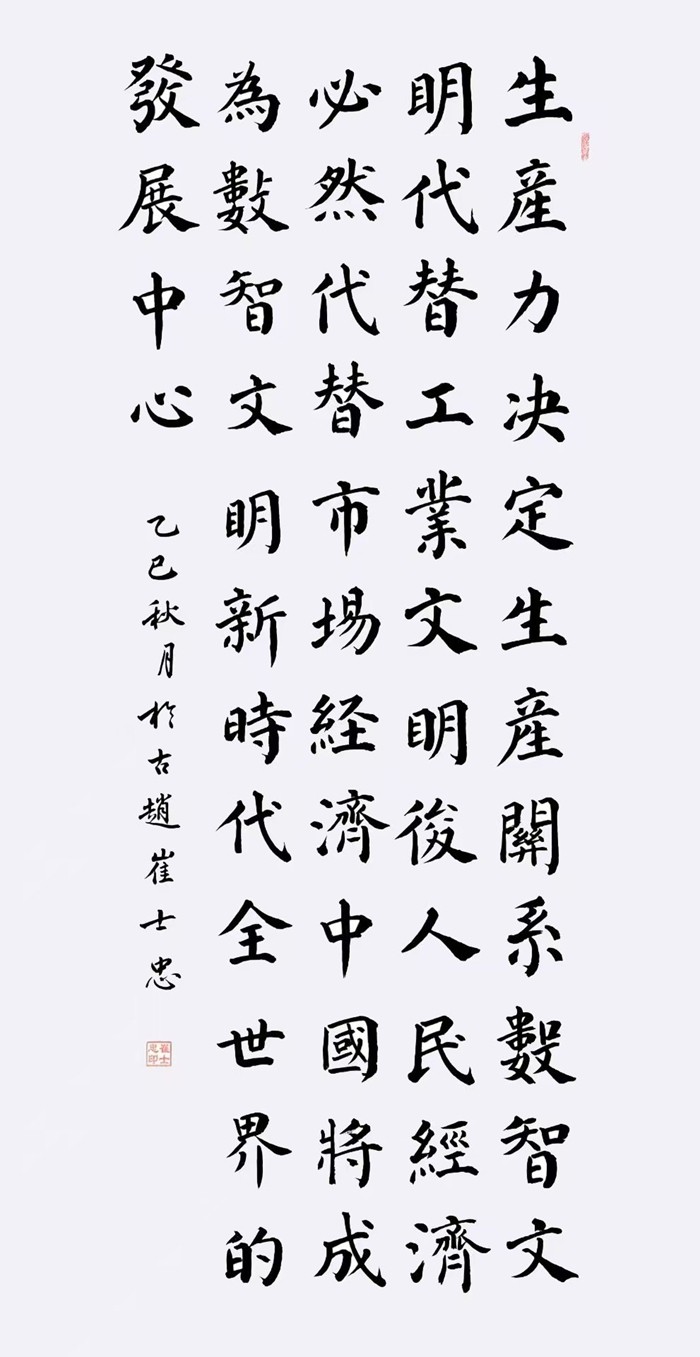 生産力决定生産關系數智文
明代替工業文明後人民經濟
必然代替市場経濟中國將成
為數智文明新時代全世界的
發展中心
乙巳秋月於古趙崔士忠
崔士忠印